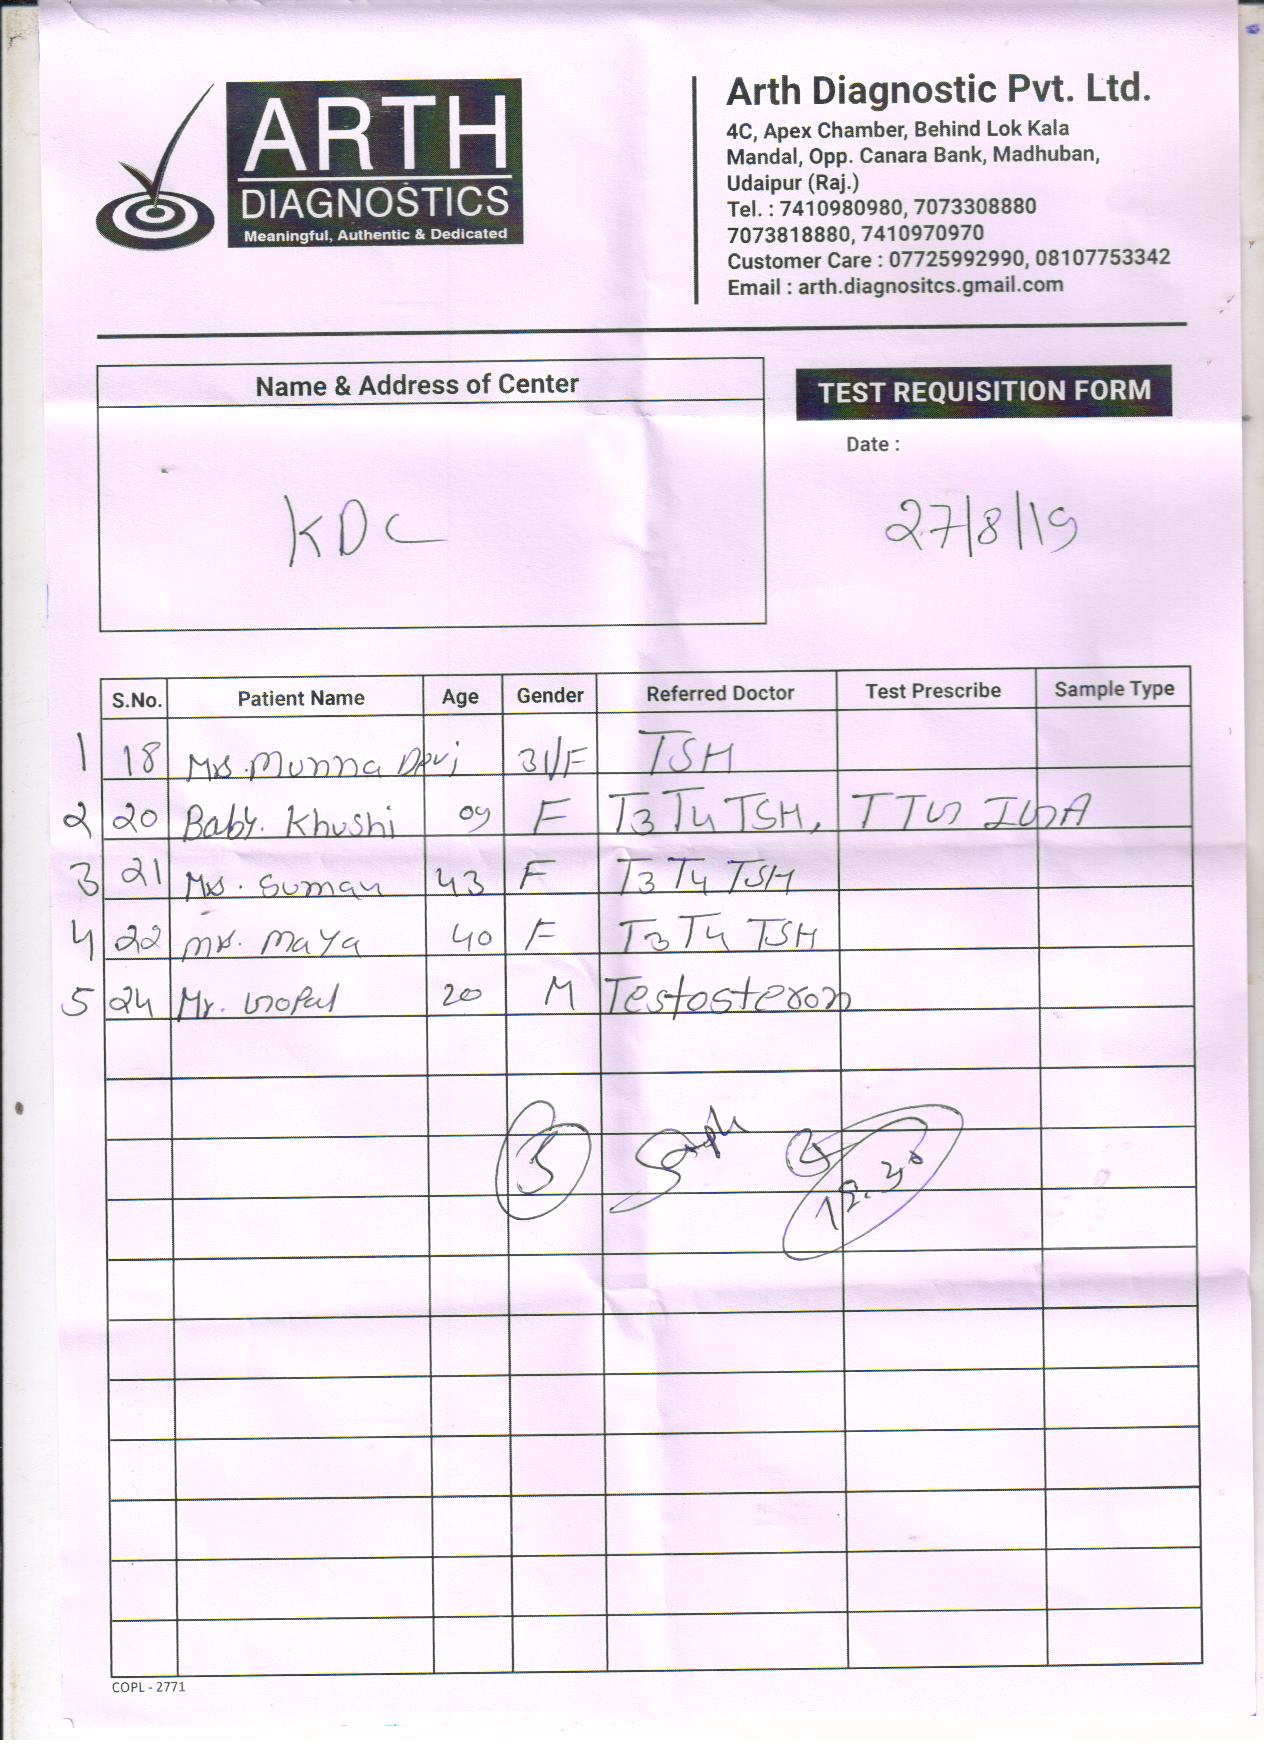 ARTH
DIAGNOSTICS
Meaningful, Authentic & Dedicated
Arth Diagnostic Pvt. Ltd.
4C, Apex Chamber, Behind Lok Kala
Mandal, Opp. Canara Bank, Madhuban,
Udaipur (Raj.)
Tel. : 7410980980, 7073308880
7073818880, 7410970970
Customer Care : 07725992990, 08107753342
Email : arth.diagnositcs.gmail.com
Name & Address of Center
TEST REQUISITION FORM
Date :
KDC
27/8/19
S.No. Patient Name Age Gender Referred Doctor Test Prescribe Sample Type
1 18 Mrs. Munna Devi 31/F TSH
2 20 Baby. Khushi 09 F T3 T4 TSH, TTG IGA
3 21 Mrs. Suman 43 F T3 T4 TSH
4 22 Mrs. Maya 40 F T3 T4 TSH
5 24 Mr. Gopal 20 M Testosteron
COPL - 2771